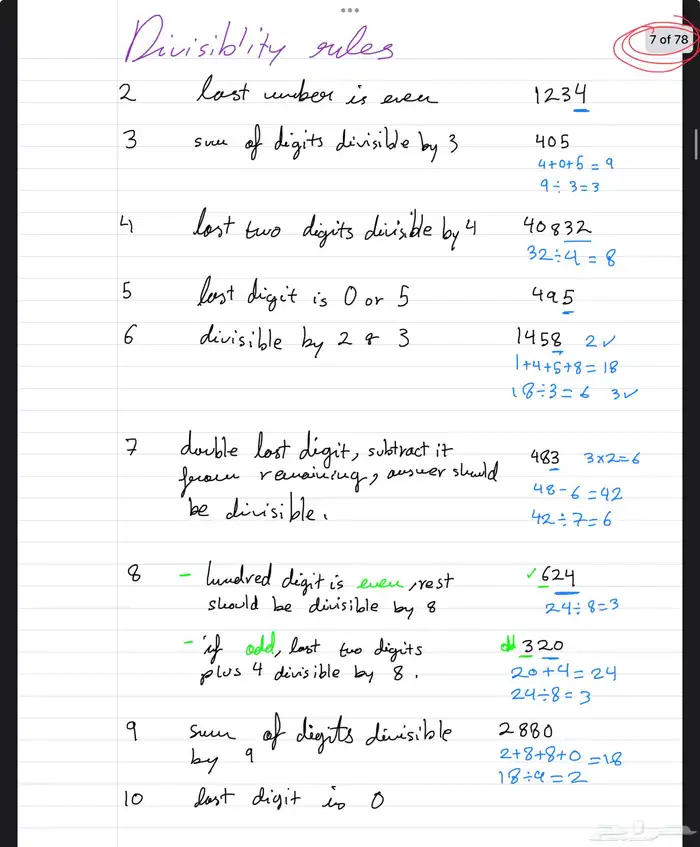 7 of 78
Divisiblity rules
2 last number is even 1234
3 sum of digits divisible by 3 405
4+0+5=9
9÷3=3
4 last two digits divisible by 4 40832
32÷4=8
5 last digit is 0 or 5 495
6 divisible by 2 & 3 1458 2✓
1+4+5+8=18
18÷3=6 3✓
7 double last digit, subtract it 483 3×2=6
from remaining, answer should 48-6=42
be divisible. 42÷7=6
8 - hundred digit is even, rest ✓624
should be divisible by 8 24÷8=3
- if odd, last two digits 320
plus 4 divisible by 8. 20+4=24
24÷8=3
9 sum of digits divisible 2880
by 9 2+8+8+0=18
18÷9=2
10 last digit is 0
حراج